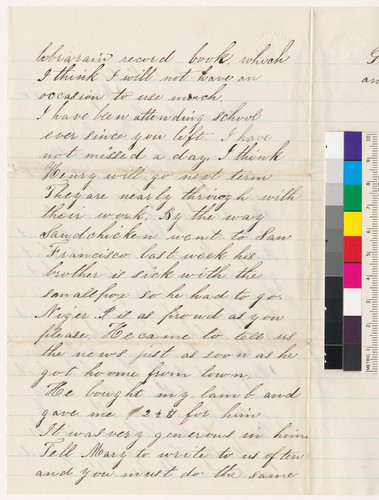 librarain record book, which
I think I will not have an
occasion to use much.
I have been attending school
ever since you left. I have
not missed a day, I think
Henry will go next term
They are nearly through with
their work. By the way
Sandchicken went to San
Francisco last week his
brother is sick with the
smallpox so he had to go.
Niger A is as prowd as you
please, He came to tell us
the news just as soon as he
got hoome from town.
He bought my lamb and
gave me for him
It was very generous in him
Tell Mary to write to us often
and you must do the same